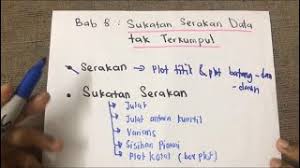 Bab 8 : Sukatan Serakan Data
tak Terkumpul
Serakan → Plot titik & plot batang-dan-
daun
Sukatan Serakan
Julat
Julat antara kuartil
Varians
Sisihan Piawai
Plot kotak (boxplot)